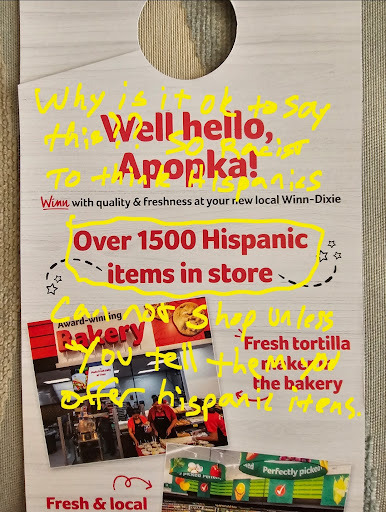 Why is it ok to say
this?? SO Racist
Well hello,
To think Hispanics
Apopka!
Winn with quality & freshness at your new local Winn-Dixie
Over 1500 Hispanic
items in store
Can not shop unless
Award-winning
Bakery
you tell them you
Fresh tortilla
maker
the bakery
offer hispanic items.
Perfectly picked
Fresh & local